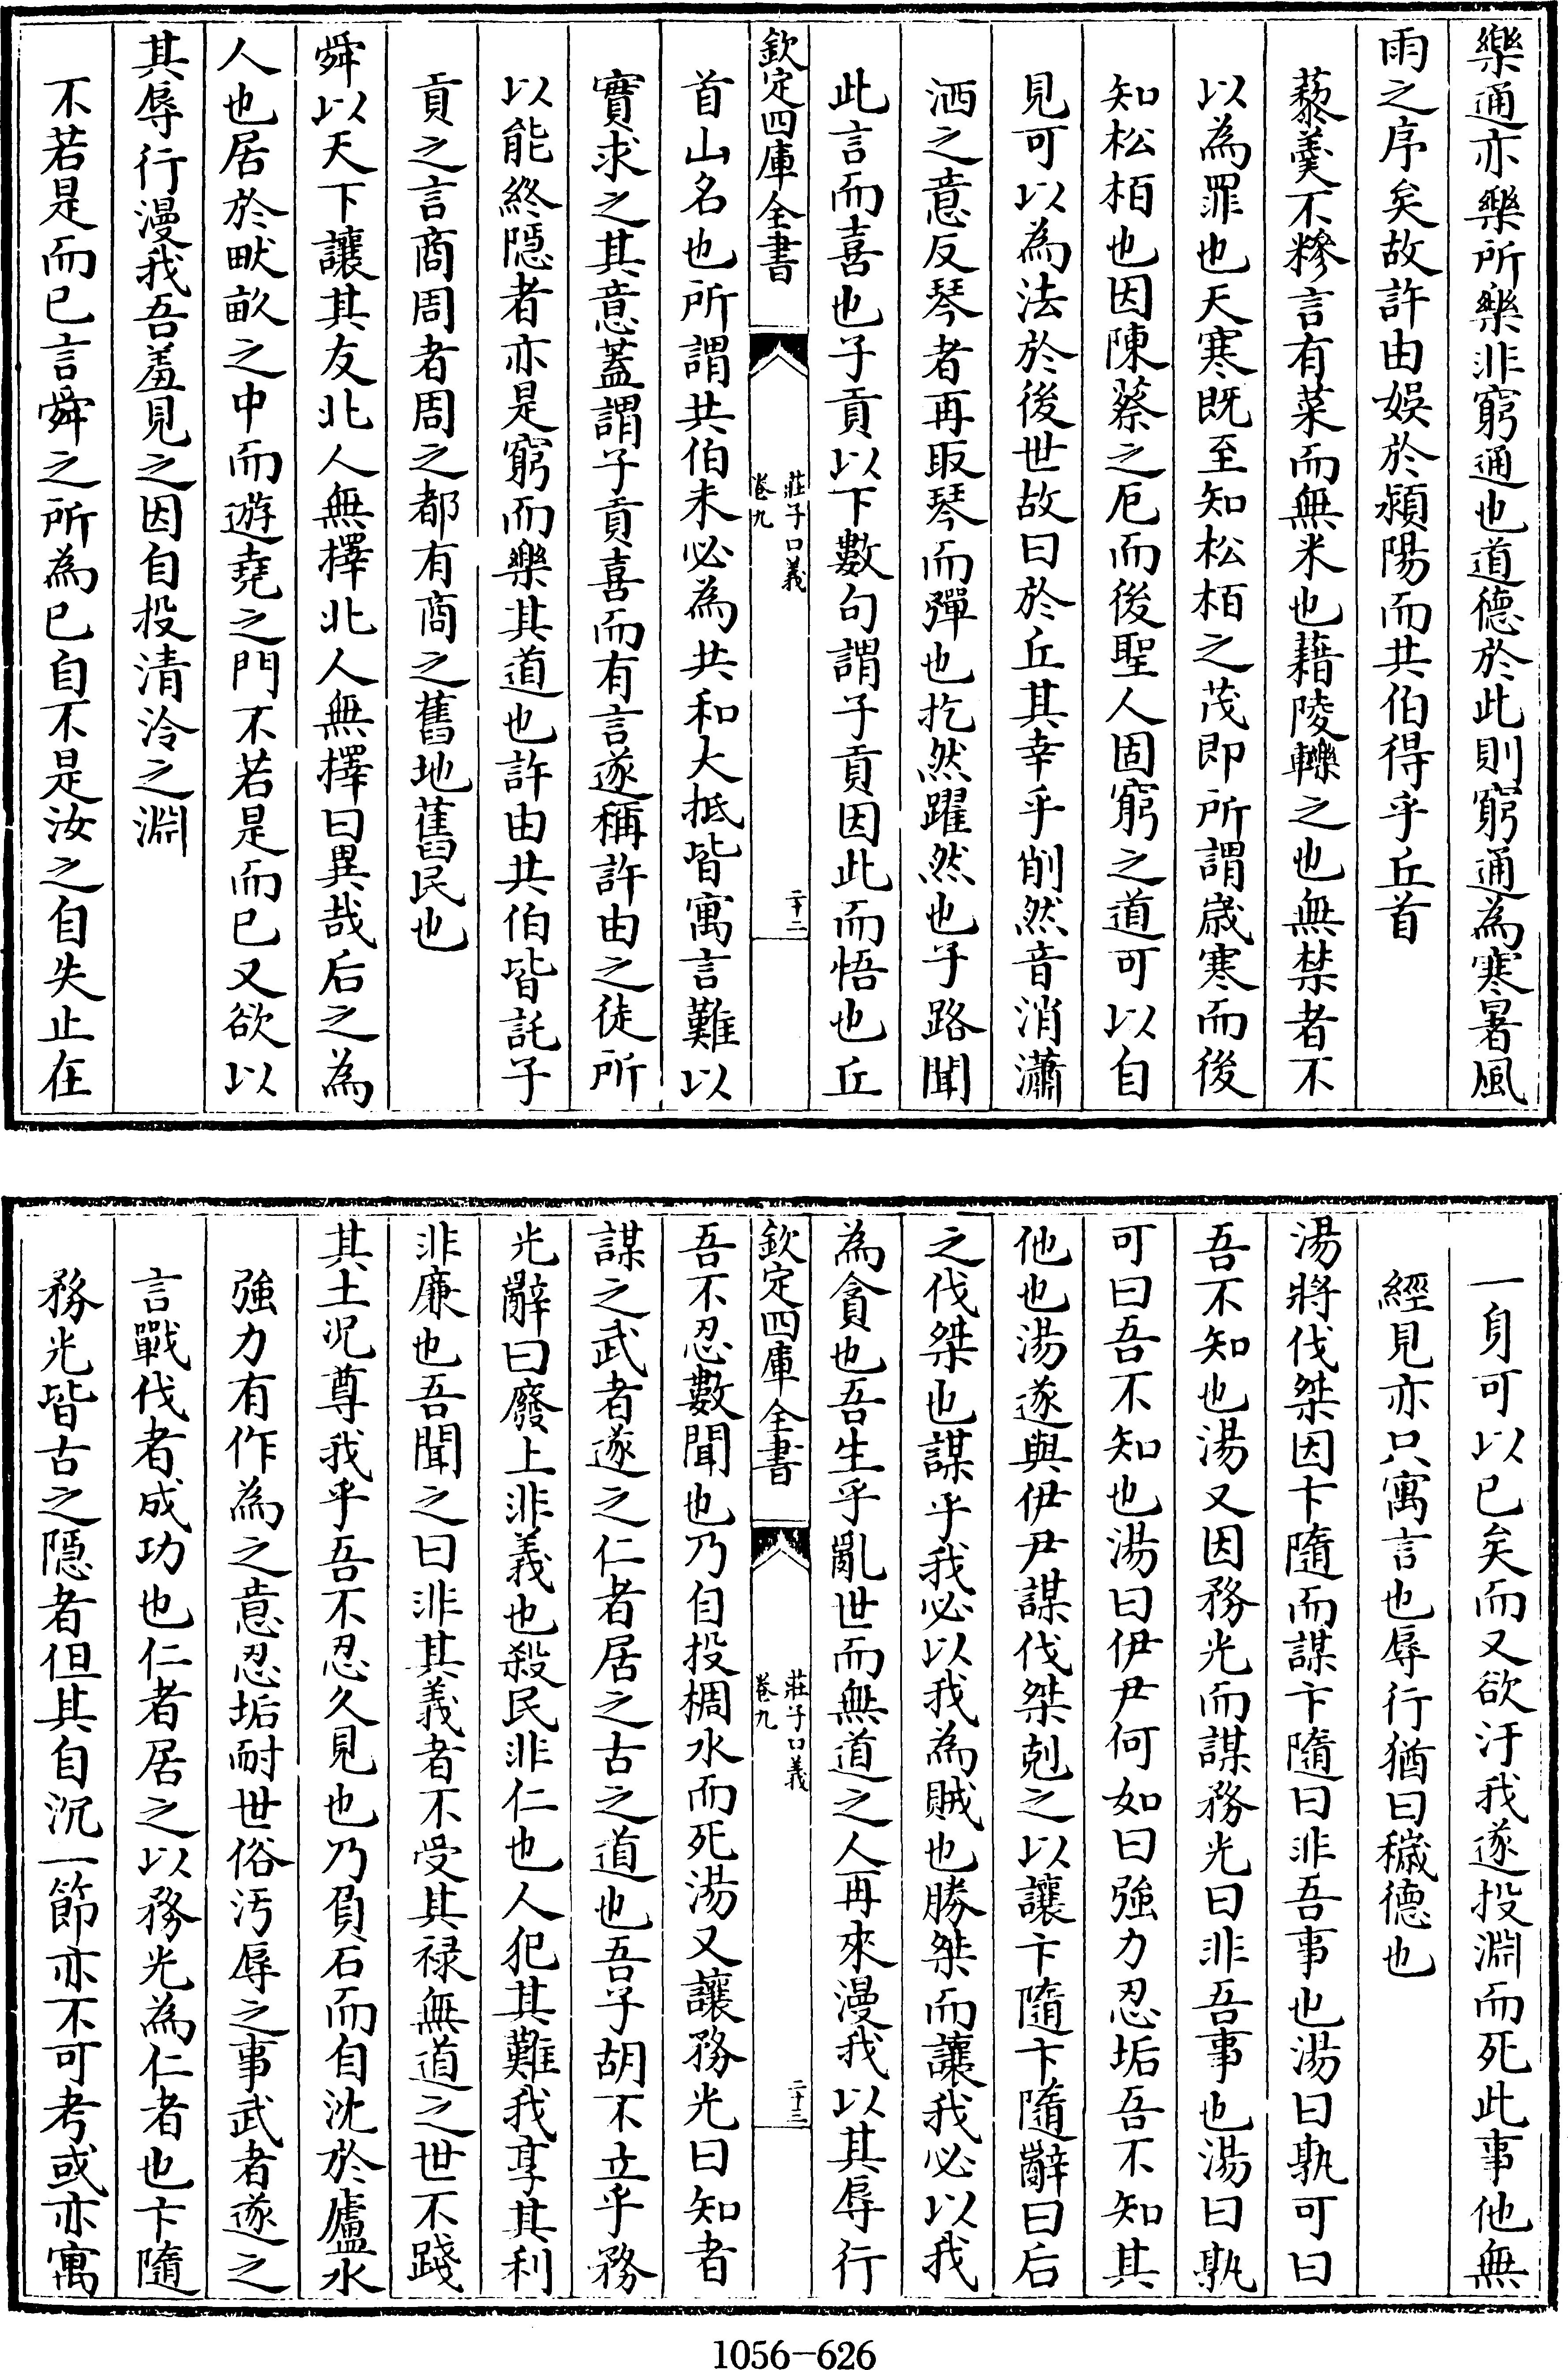 樂通亦樂所樂非窮通也道德於此則窮通為寒暑風
雨之序矣故許由娛於潁陽而共伯得乎丘首
藜羹不糝言有菜而無米也藉陵轢之也無禁者不
以為罪也天寒既至知松栢之茂即所謂歲寒而後
知松栢也因陳蔡之厄而後聖人固窮之道可以自
見可以為法於後世故曰於丘其幸乎削然音消瀟
洒之意反琴者再取琴而彈也扢然躍然也子路聞
此言而喜也子貢以下數句謂子貢因此而悟也丘
欽定四庫全書
莊子口義
卷九
二十二
首山名也所謂共伯未必為共和大抵皆寓言難以
實求之其意蓋謂子貢喜而有言遂稱許由之徒所
以能終隱者亦是窮而樂其道也許由共伯皆託子
貢之言商周者周之都有商之舊地舊民也
舜以天下讓其友北人無擇北人無擇曰異哉后之為
人也居於畎畝之中而遊堯之門不若是而已又欲以
其辱行漫我吾羞見之因自投清泠之淵
不若是而已言舜之所為已自不是汝之自失止在
一身可以已矣而又欲汙我遂投淵而死此事他無
經見亦只寓言也辱行猶曰穢德也
湯將伐桀因卞隨而謀卞隨曰非吾事也湯曰孰可曰
吾不知也湯又因務光而謀務光曰非吾事也湯曰孰
可曰吾不知也湯曰伊尹何如曰強力忍垢吾不知其
他也湯遂與伊尹謀伐桀剋之以讓卞隨卞隨辭曰后
之伐桀也謀乎我必以我為賊也勝桀而讓我必以我
為貪也吾生乎亂世而無道之人再來漫我以其辱行
欽定四庫全書
莊子口義
卷九
二十三
吾不忍數聞也乃自投椆水而死湯又讓務光曰知者
謀之武者遂之仁者居之古之道也吾子胡不立乎務
光辭曰廢上非義也殺民非仁也人犯其難我享其利
非廉也吾聞之曰非其義者不受其祿無道之世不踐
其土况尊我乎吾不忍久見也乃負石而自沈於廬水
強力有作為之意忍垢耐世俗污辱之事武者遂之
言戰伐者成功也仁者居之以務光為仁者也卞隨
務光皆古之隱者但其自沉一節亦不可考或亦寓
1056-626